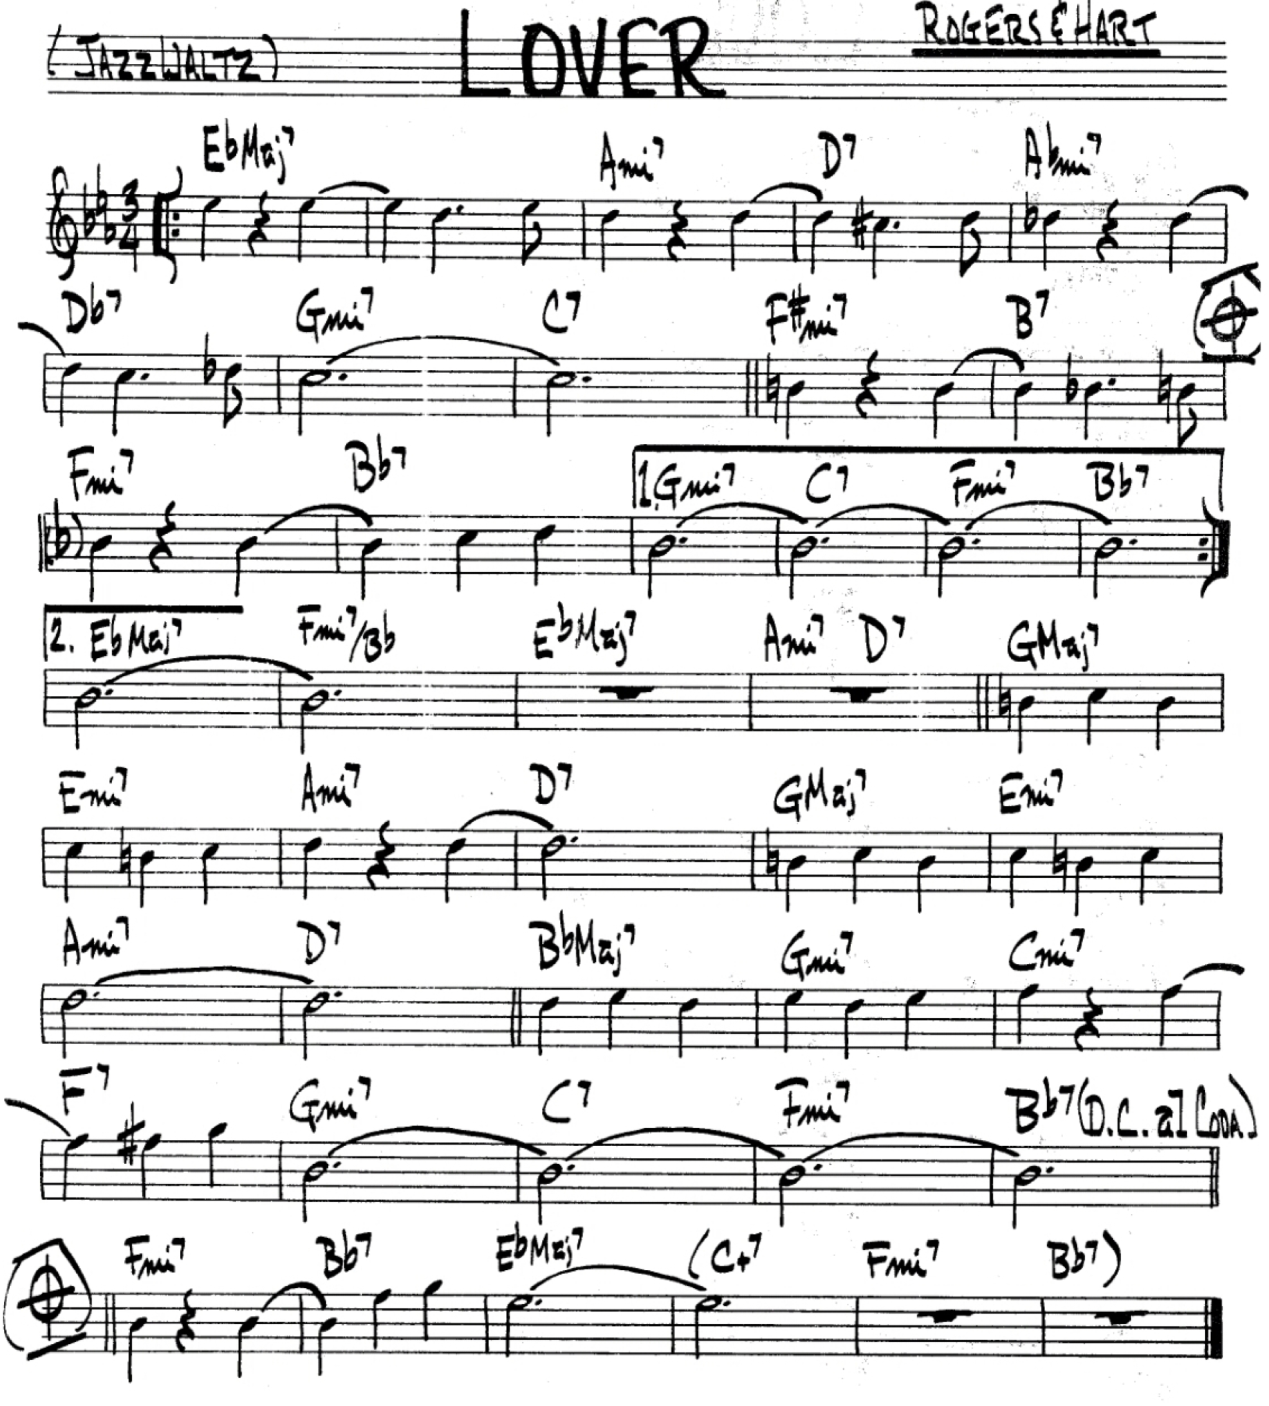 ROGERS & HART
(JAZZ WALTZ) LOVER
EbMaj7 Ami7 D7 Abmi7
3/4
Db7 Gmi7 C7 F#mi7 B7
Fmi7 Bb7 1. Gmi7 C7 Fmi7 Bb7
(b)
2. EbMaj7 Fmi7/Bb EbMaj7 Ami7 D7 GMaj7
Emi7 Ami7 D7 GMaj7 Emi7
Ami7 D7 BbMaj7 Gmi7 Cmi7
F7 Gmi7 C7 Fmi7 Bb7 (D.C. al CODA)
Fmi7 Bb7 EbMaj7 (C+7 Fmi7 Bb7)